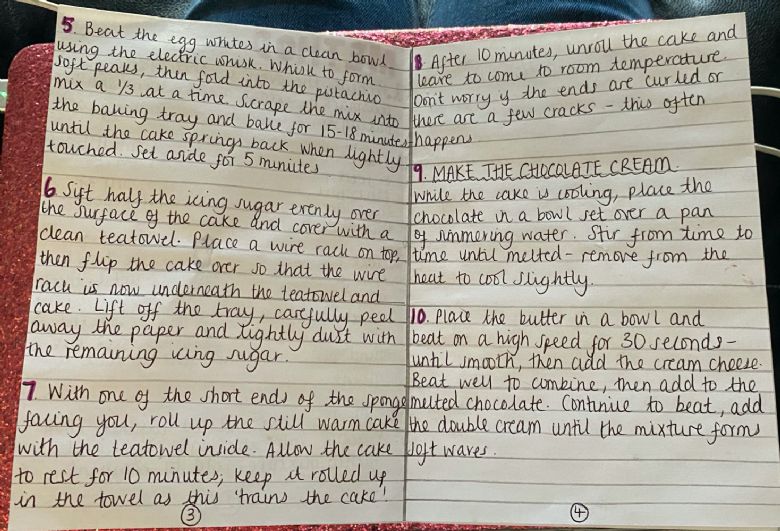 5. Beat the egg whites in a clean bowl
using the electric whisk. Whisk to form
soft peaks, then fold into the pistachio
mix a 1/3 at a time. Scrape the mix into
the baking tray and bake for 15-18 minutes
until the cake springs back when lightly
touched. Set aside for 5 minutes
6. Sift half the icing sugar evenly over
the surface of the cake and cover with a
clean teatowel. Place a wire rack on top,
then flip the cake over so that the wire
rack is now underneath the teatowel and
cake. Lift off the tray, carefully peel
away the paper and lightly dust with
the remaining icing sugar.
7. With one of the short ends of the sponge
facing you, roll up the still warm cake
with the teatowel inside. Allow the cake
to rest for 10 minutes, keep it rolled up
in the towel as this 'trains the cake'
3
8. After 10 minutes, unroll the cake and
leave to come to room temperature.
Don't worry if the ends are curled or
there are a few cracks - this often
happens
9. MAKE THE CHOCOLATE CREAM.
While the cake is cooling, place the
chocolate in a bowl set over a pan
of simmering water. Stir from time to
time until melted - remove from the
heat to cool slightly.
10. Place the butter in a bowl and
beat on a high speed for 30 seconds -
until smooth, then add the cream cheese.
Beat well to combine, then add to the
melted chocolate. Continue to beat, add
the double cream until the mixture forms
soft waves.
4